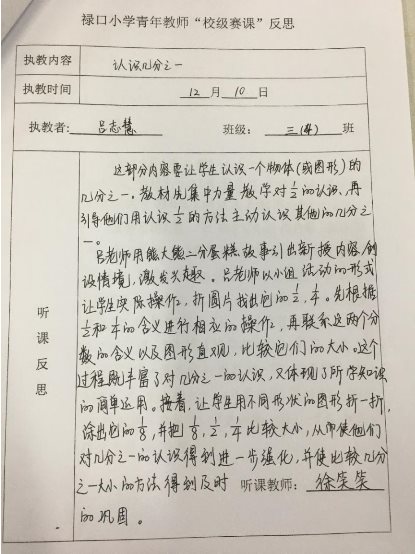 禄口小学青年教师“校级赛课”反思
执教内容 认识几分之一
执教时间 12 月 10 日
执教者: 吕志慧 班级: 三(4) 班
听课反思
这部分内容要让学生认识一个物体(或图形)的
几分之一。教材先集中力量教学对1/2的认识,再
引导他们用认识1/2的方法主动认识其他的几分之
一。
吕老师用熊大熊二分蛋糕故事引出新授内容,创
设情境,激发兴趣。吕老师以小组活动的形式
让学生实际操作,折圆片找出它的1/2,1/4。先根据
1/2和1/4的含义进行相应的操作,再联系这两个分
数的含义以及图形直观,比较它们的大小。这个
过程既丰富了对几分之一的认识,又体现了所学知识
的简单运用。接着,让学生用不同形状的图形折一折,
涂出它的1/8,并把1/8,1/2,1/4比较大小,从而使他们
对几分之一的认识得到进一步强化,并使比较几分
之一大小的方法得到及时 听课教师: 徐笑笑
的巩固。